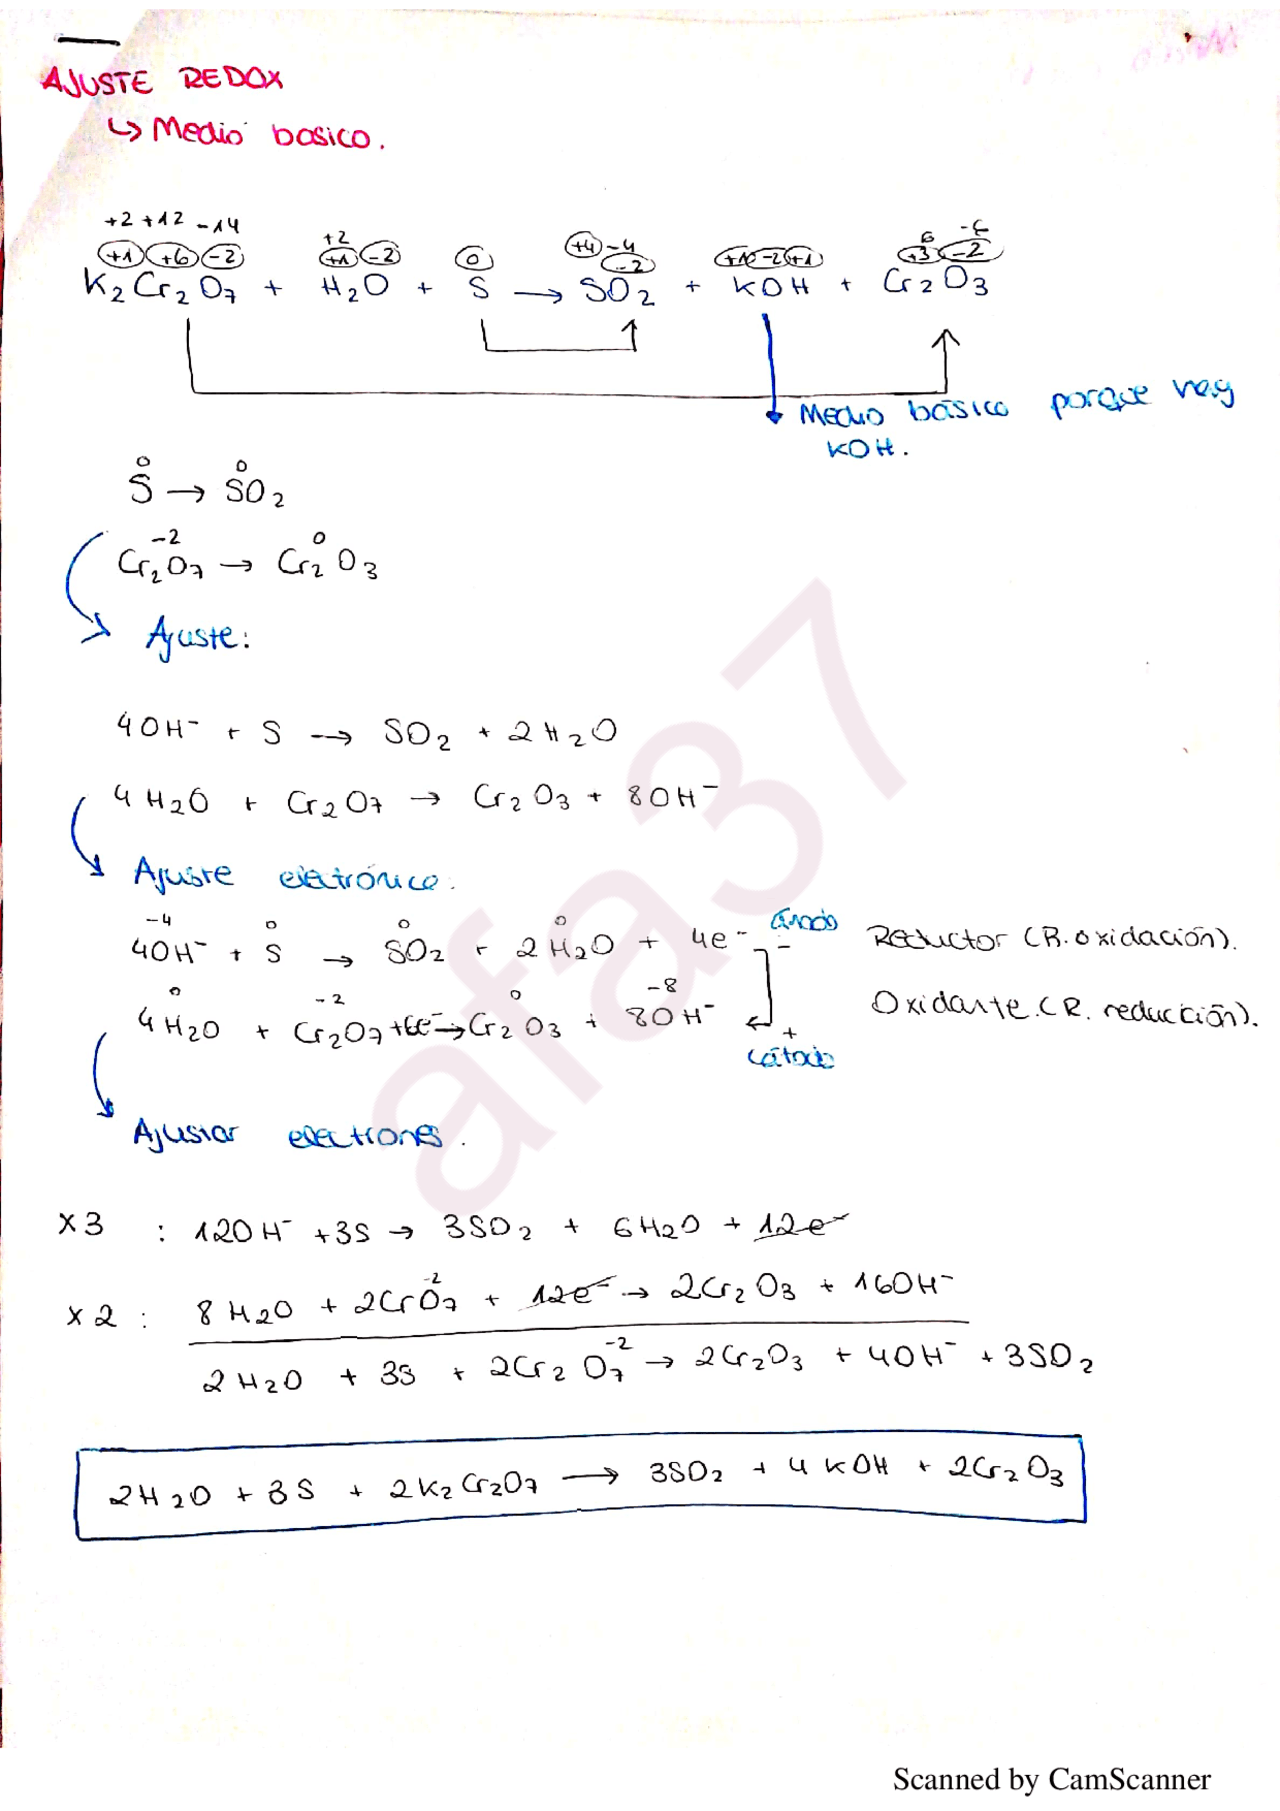 AJUSTE REDOX
↳ Medio basico.
+2 +12 -14 +2 +4 -4 6 -6
+1 +6 -2 +1 -2 0 -2 +1 -2 +1 +3 -2
K2Cr2O7 + H2O + S → SO2 + KOH + Cr2O3
Medio básico porque hay
KOH.
0 0
S → SO2
-2 0
Cr2O7 → Cr2O3
Ajuste:
4OH⁻ + S → SO2 + 2H2O
4H2O + Cr2O7 → Cr2O3 + 8OH⁻
Ajuste eletrónico.
-4 0 0 0
4OH⁻ + S → SO2 + 2H2O + 4e⁻ ánodo - Reductor (R. oxidación).
0 -2 0 -8
4H2O + Cr2O7 + 6e⁻ → Cr2O3 + 8OH⁻ + Oxidante (R. reducción).
cátodo
Ajustar electrones.
x3 : 12OH⁻ + 3S → 3SO2 + 6H2O + 12e⁻
x2 : 8H2O + 2CrO7⁻² + 12e⁻ → 2Cr2O3 + 16OH⁻
2H2O + 3S + 2Cr2O7⁻² → 2Cr2O3 + 4OH⁻ + 3SO2
2H2O + 3S + 2K2Cr2O7 → 3SO2 + 4KOH + 2Cr2O3
afa37
Scanned by CamScanner